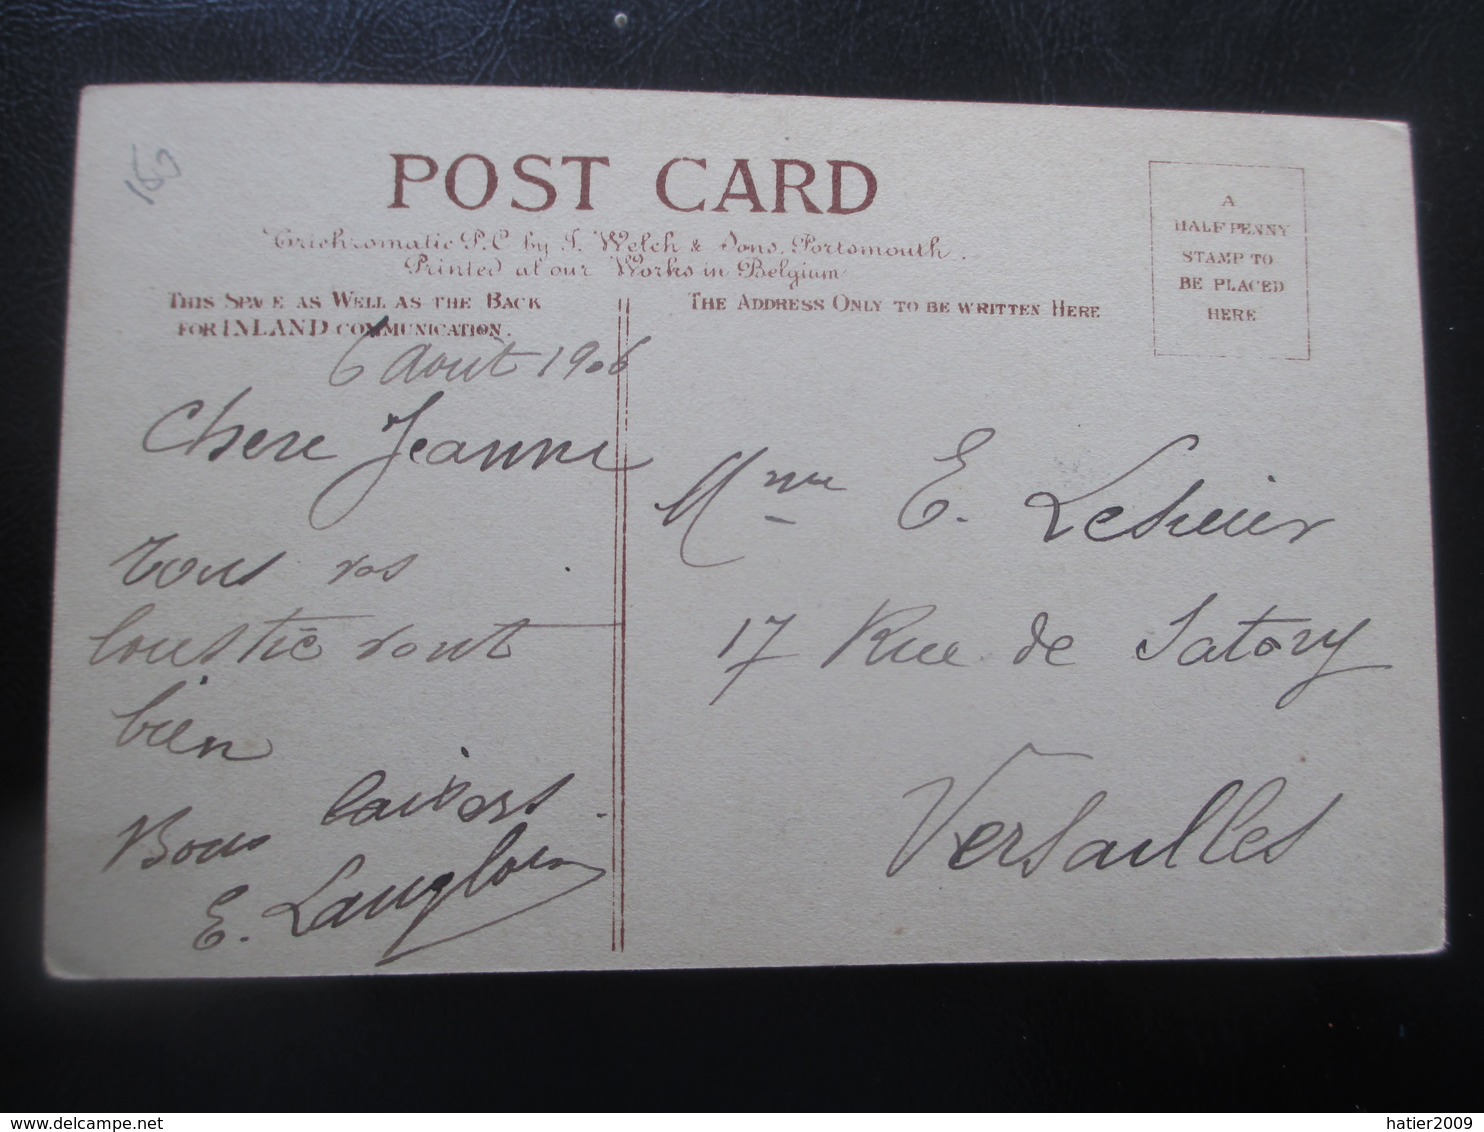 POST CARD
Trichromatic P.C. by J. Welch & Sons, Portsmouth.
Printed at our Works in Belgium
THIS SPACE AS WELL AS THE BACK
FOR INLAND COMMUNICATION.
THE ADDRESS ONLY TO BE WRITTEN HERE
A
HALFPENNY
STAMP TO
BE PLACED
HERE
6 Aout 1906
Chere Jeanne
Tous vos
loustic vont
bien
Bons baisers
E. Langlois
Mme E. Lesueur
17 Rue de Satory
Versailles
www.delcampe.net
hatier2009